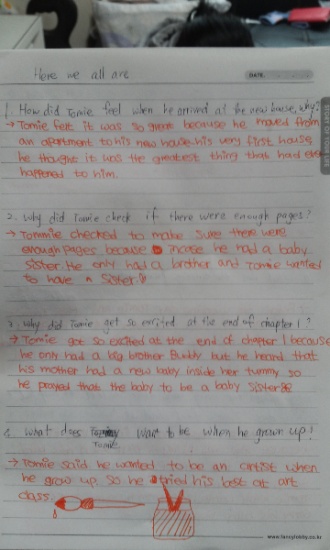 Here we all are
DATE.
1. How did Tomie feel when he arrived at the new house, why?
→ Tomie felt it was so great because he moved from
an apartment to his new house. his very first house
he thought it was the greatest thing that had ever
happened to him.
2. why did Tomie check if there were enough pages?
→ Tommie checked to make sure there were
enough pages because incase he had a baby
sister. He only had a brother and Tomie wanted
to have a sister.
why did Tomie got so excited at the end of chapter 1?
→ Tomie got so excited at the end of chapter 1 because
he only had a big brother Buddy but he heard that
his mother had a new baby inside her tummy so
he prayed that the baby to be a baby sister
what does Tomie want to be when he grown up?
→ Tomie said he wanted to be an artist when
he grow up. so he tried his best at art
class.